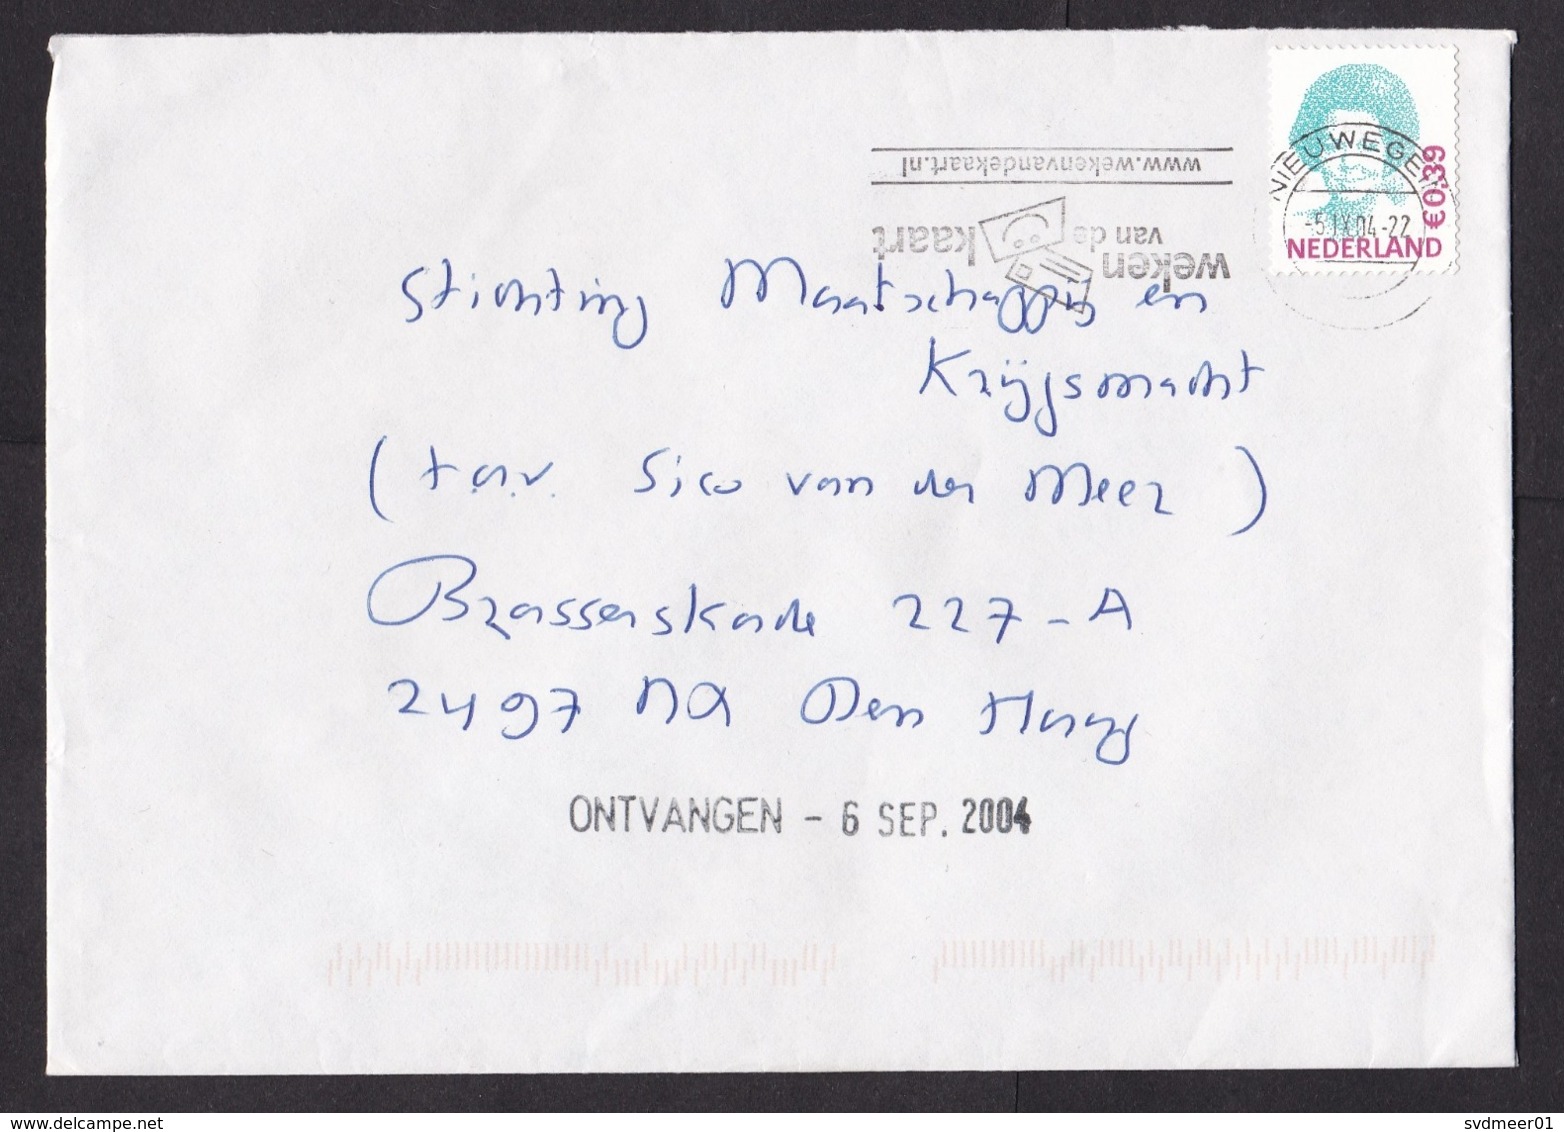 www.wekenvandekaart.nl
weken
van de
kaart
NIEUWEGEIN
-5.IX.04-22
€0,39
NEDERLAND
Stichting Maatschappij en
Krijgsmacht
(t.a.v. Sico van der Meer)
Brasserskade 227-A
2497 NX Den Haag
ONTVANGEN - 6 SEP. 2004
svdmeer01